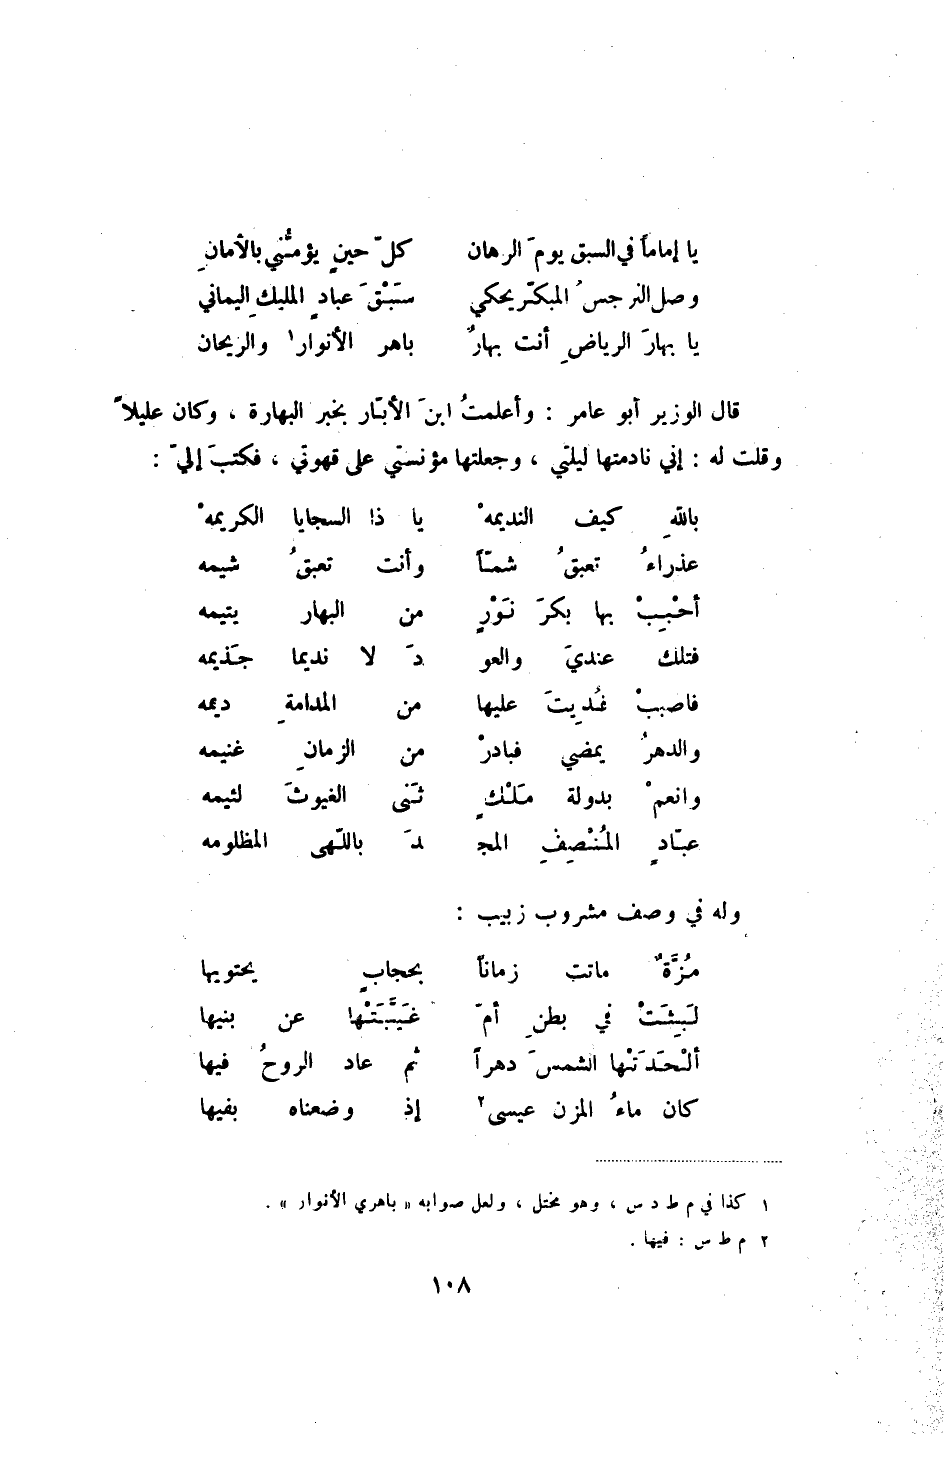 يا إماماً في السبق يومَ الرهان كلّ حينٍ يؤمنُّني بالأمانِ
وصل النرجسُ المبكّر يحكي سَبْقَ عبادٍ المليكِ اليماني
يا بهارَ الرياضِ أنت بهارٌ باهر الأنوار١ والريحان
قال الوزير أبو عامر : وأعلمتُ ابنَ الأبّار بخبر البهارة ، وكان عليلاً
وقلت له : إني نادمتها ليلتي ، وجعلتها مؤنستي على قهوتي ، فكتبَ إليّ :
باللهِ كيف النديمهْ يا ذا السجايا الكريمهْ
عذراءُ تعبقُ شمّاً وأنت تعبقُ شيمه
أحْبِبْ بها بكرَ نَوْرٍ من البهار يتيمه
فتلك عنديَ والعو دَ لا نديما جَذيمه
فاصببْ فُديتَ عليها من المدامةِ ديمه
والدهرُ يمضي فبادرْ من الزمانِ غنيمه
وانعمْ بدولة مَلْكٍ ثَنى الغيوثَ لئيمه
عبّادٍ المُنْصِفِ المجـ ـدَ باللّهى المظلومه
وله في وصف مشروب زبيب :
مُزَّةٌ ماتت زماناً بحجابٍ يحتويها
لَبِثَتْ في بطنِ أمّ غَيَّبَتْها عن بنيها
ألْحَدَتْها الشمسَ دهراً ثم عاد الروحُ فيها
كان ماءُ المزن عيسى٢ إذ وضعناه بفيها
١ كذا في م ط د س ، وهو مختل ، ولعل صوابه « باهري الأنوار » .
٢ م ط س : فيها .
١٠٨